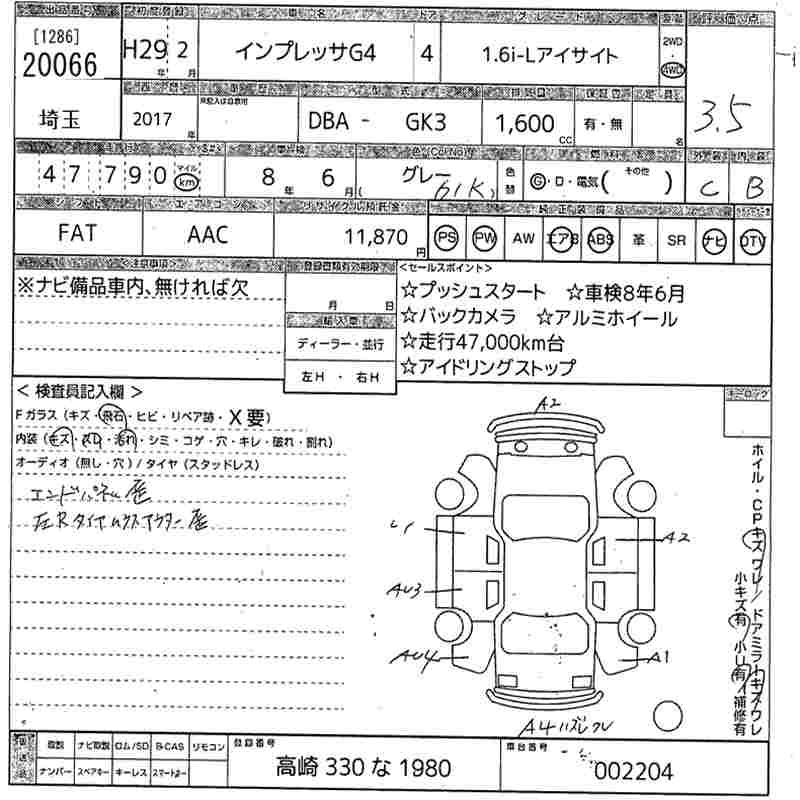 出品番号 初度登録 車名 ドア グレード 駆動 評価点
[1286]
20066
H29年 2月
インプレッサG4
4
1.6i-Lアイサイト
2WD
・
4WD
3.5
埼玉
2017年
型式
DBA - GK3
排気量
1,600 CC
有・無
名
47790
マイル
km
車検
8年 6月
グレー
(カ1K)
色替
Ⓖ・D・電気( その他 )
外装 内装
C B
シフト エアコン リサイクル預託金
FAT
AAC
11,870円
PS PW AW エアB ABS 革 SR ナビ DTV
注意事項
登録書類有効期限
※ナビ備品車内、無ければ欠
月 日
輸入車
ディーラー・並行
左H・右H
<セールスポイント>
☆プッシュスタート ☆車検8年6月
☆バックカメラ ☆アルミホイール
☆走行47,000km台
☆アイドリングストップ
< 検査員記入欄 >
Fガラス(キズ・飛石・ヒビ・リペア跡・X要)
内装(キズ・スレ・汚れ・シミ・コゲ・穴・キレ・破れ・割れ)
オーディオ(無し・穴)/タイヤ(スタッドレス)
エンドパネル歴
左Rタイヤハウスアウター歴
A2
A2
AU3
AU4
A1
A4ハズレワレ
ホイル・CPキズワレ/ドアミラーキズワレ
小キズ有 小U有 補修有
取説 ナビ取説 ロム/SD B-CAS リモコン
ナンバー スペアキー キーレス スマートキー
登録番号
高崎 330 な 1980
車台番号
002204